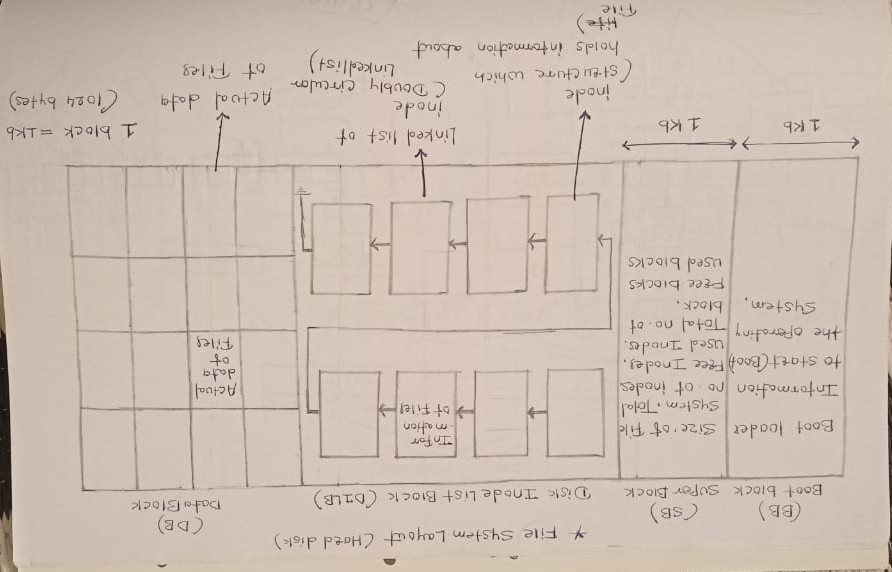 * File System Layout (Hard disk)
(BB)
Boot block
(SB)
Super Block
Disk Inode List Block (DILB)
(DB)
Data Block
Boot loader
Information
to start (Boot)
the operrating
System.
Size of File
System. Total
no. of inodes
Free Inodes.
Used Inodes.
Total no. of
block.
Free blocks
used blocks
Infor
-mation
of Files
Actual
data
of
Files
1 Kb
1 Kb
inode
(structure which
holds information about
File)
Linked list of
inode
(Doubly circular
Linkedlist)
Actual data
of Files
1 block = 1kb
(1024 bytes)